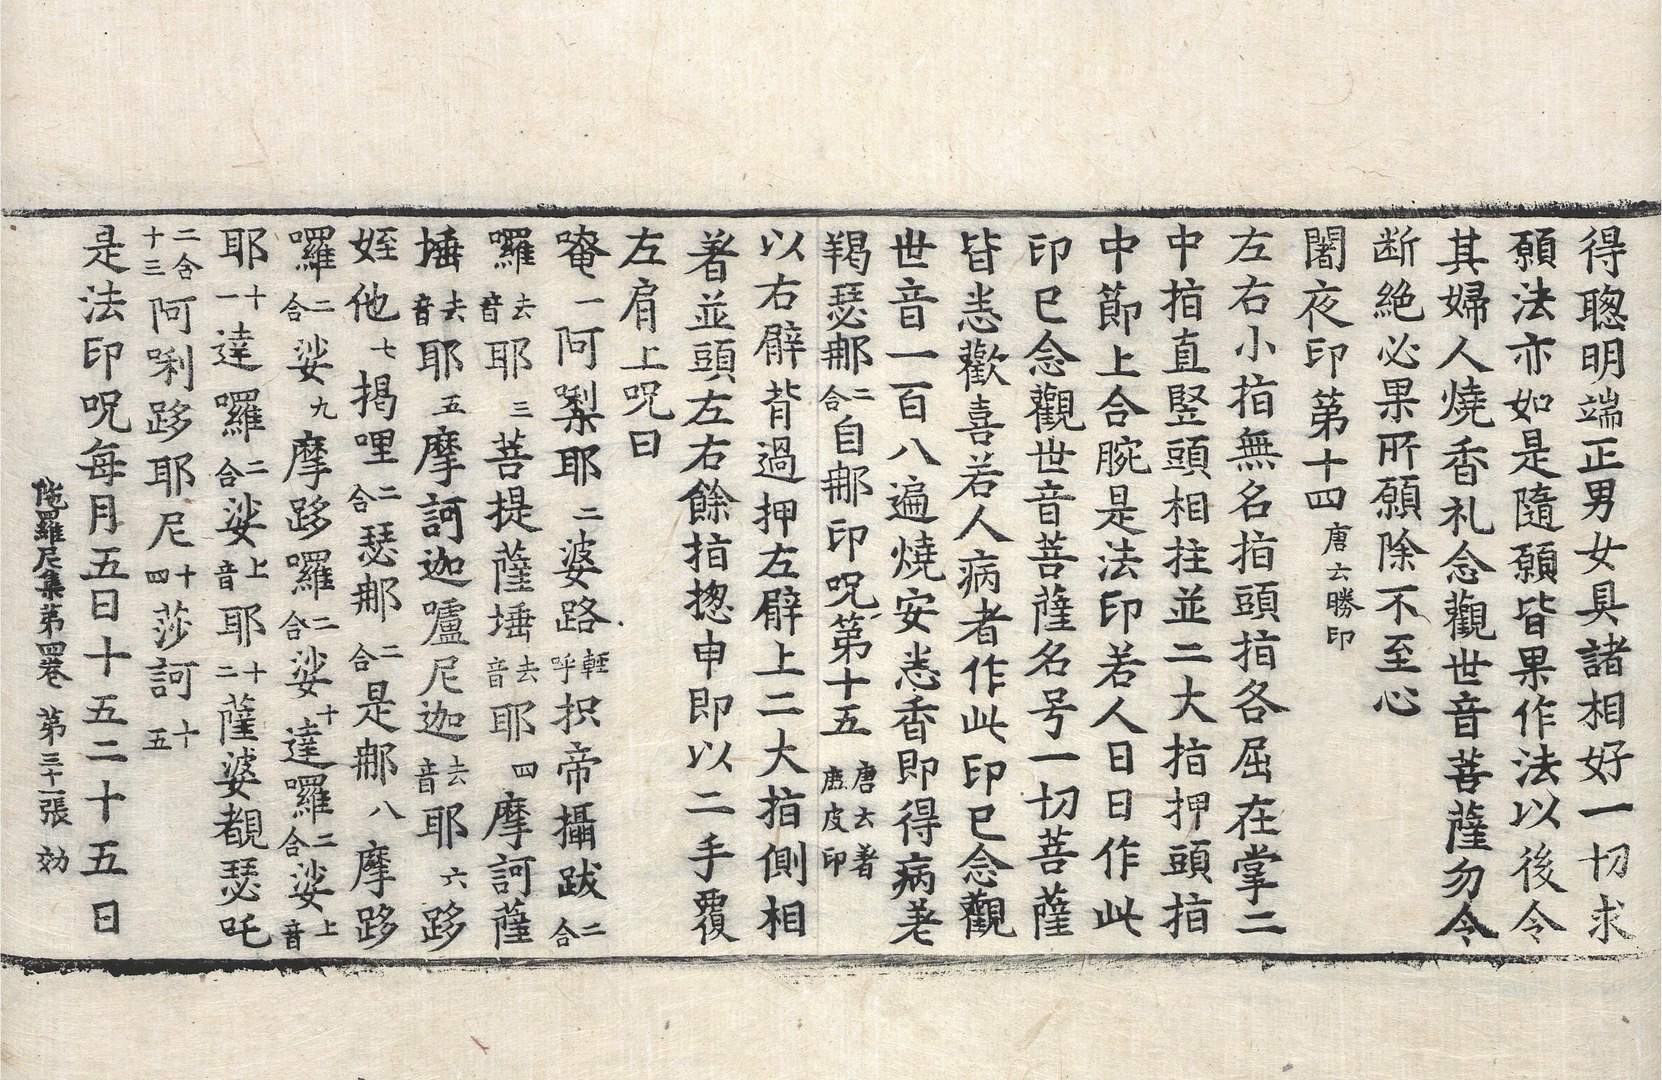 得聦明端正男女具諸相好一切求
願法亦如是隨願皆果作法以後令
其婦人燒香礼念觀世音菩薩勿令
断絕必果所願除不至心
闍夜印第十四唐云勝印
左右小指無名指頭指各屈在掌二
中指直竪頭相拄並二大指押頭指
中節上合腕是法印若人日日作此
印已念觀世音菩薩名号一切菩薩
皆悉歡喜若人病者作此印已念觀
世音一百八遍燒安悉香即得病差
羯瑟𨚗二合自𨚗印呪第十五唐云著鹿皮印
以右臂背過押左臂上二大指側相
著並頭左右餘指揔申即以二手覆
左肩上呪曰
唵一阿𠼝耶二婆路輕呼抧帝攝跋二合
囉去音耶三菩提薩埵去音耶四摩訶薩
埵去音耶五摩訶迦嚧尼迦去音耶六跢
姪他七揭哩二合瑟𨚗二合是𨚗八摩跢
囉二合娑九摩跢囉二合娑十達囉二合娑上音
耶十一達囉二合娑上音耶十二薩婆覩瑟吒
二合十三阿唎跢耶尼十四莎訶十五
是法印呪每月五日十五二十五日
陁羅尼集第四卷 第三十一張 効